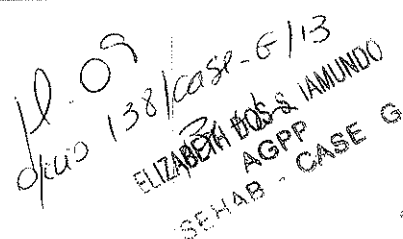 fl. 09
ofício 138/case-G/13
ELIZABETH DOS S. IAMUNDO
AGPP
SEHAB - CASE G